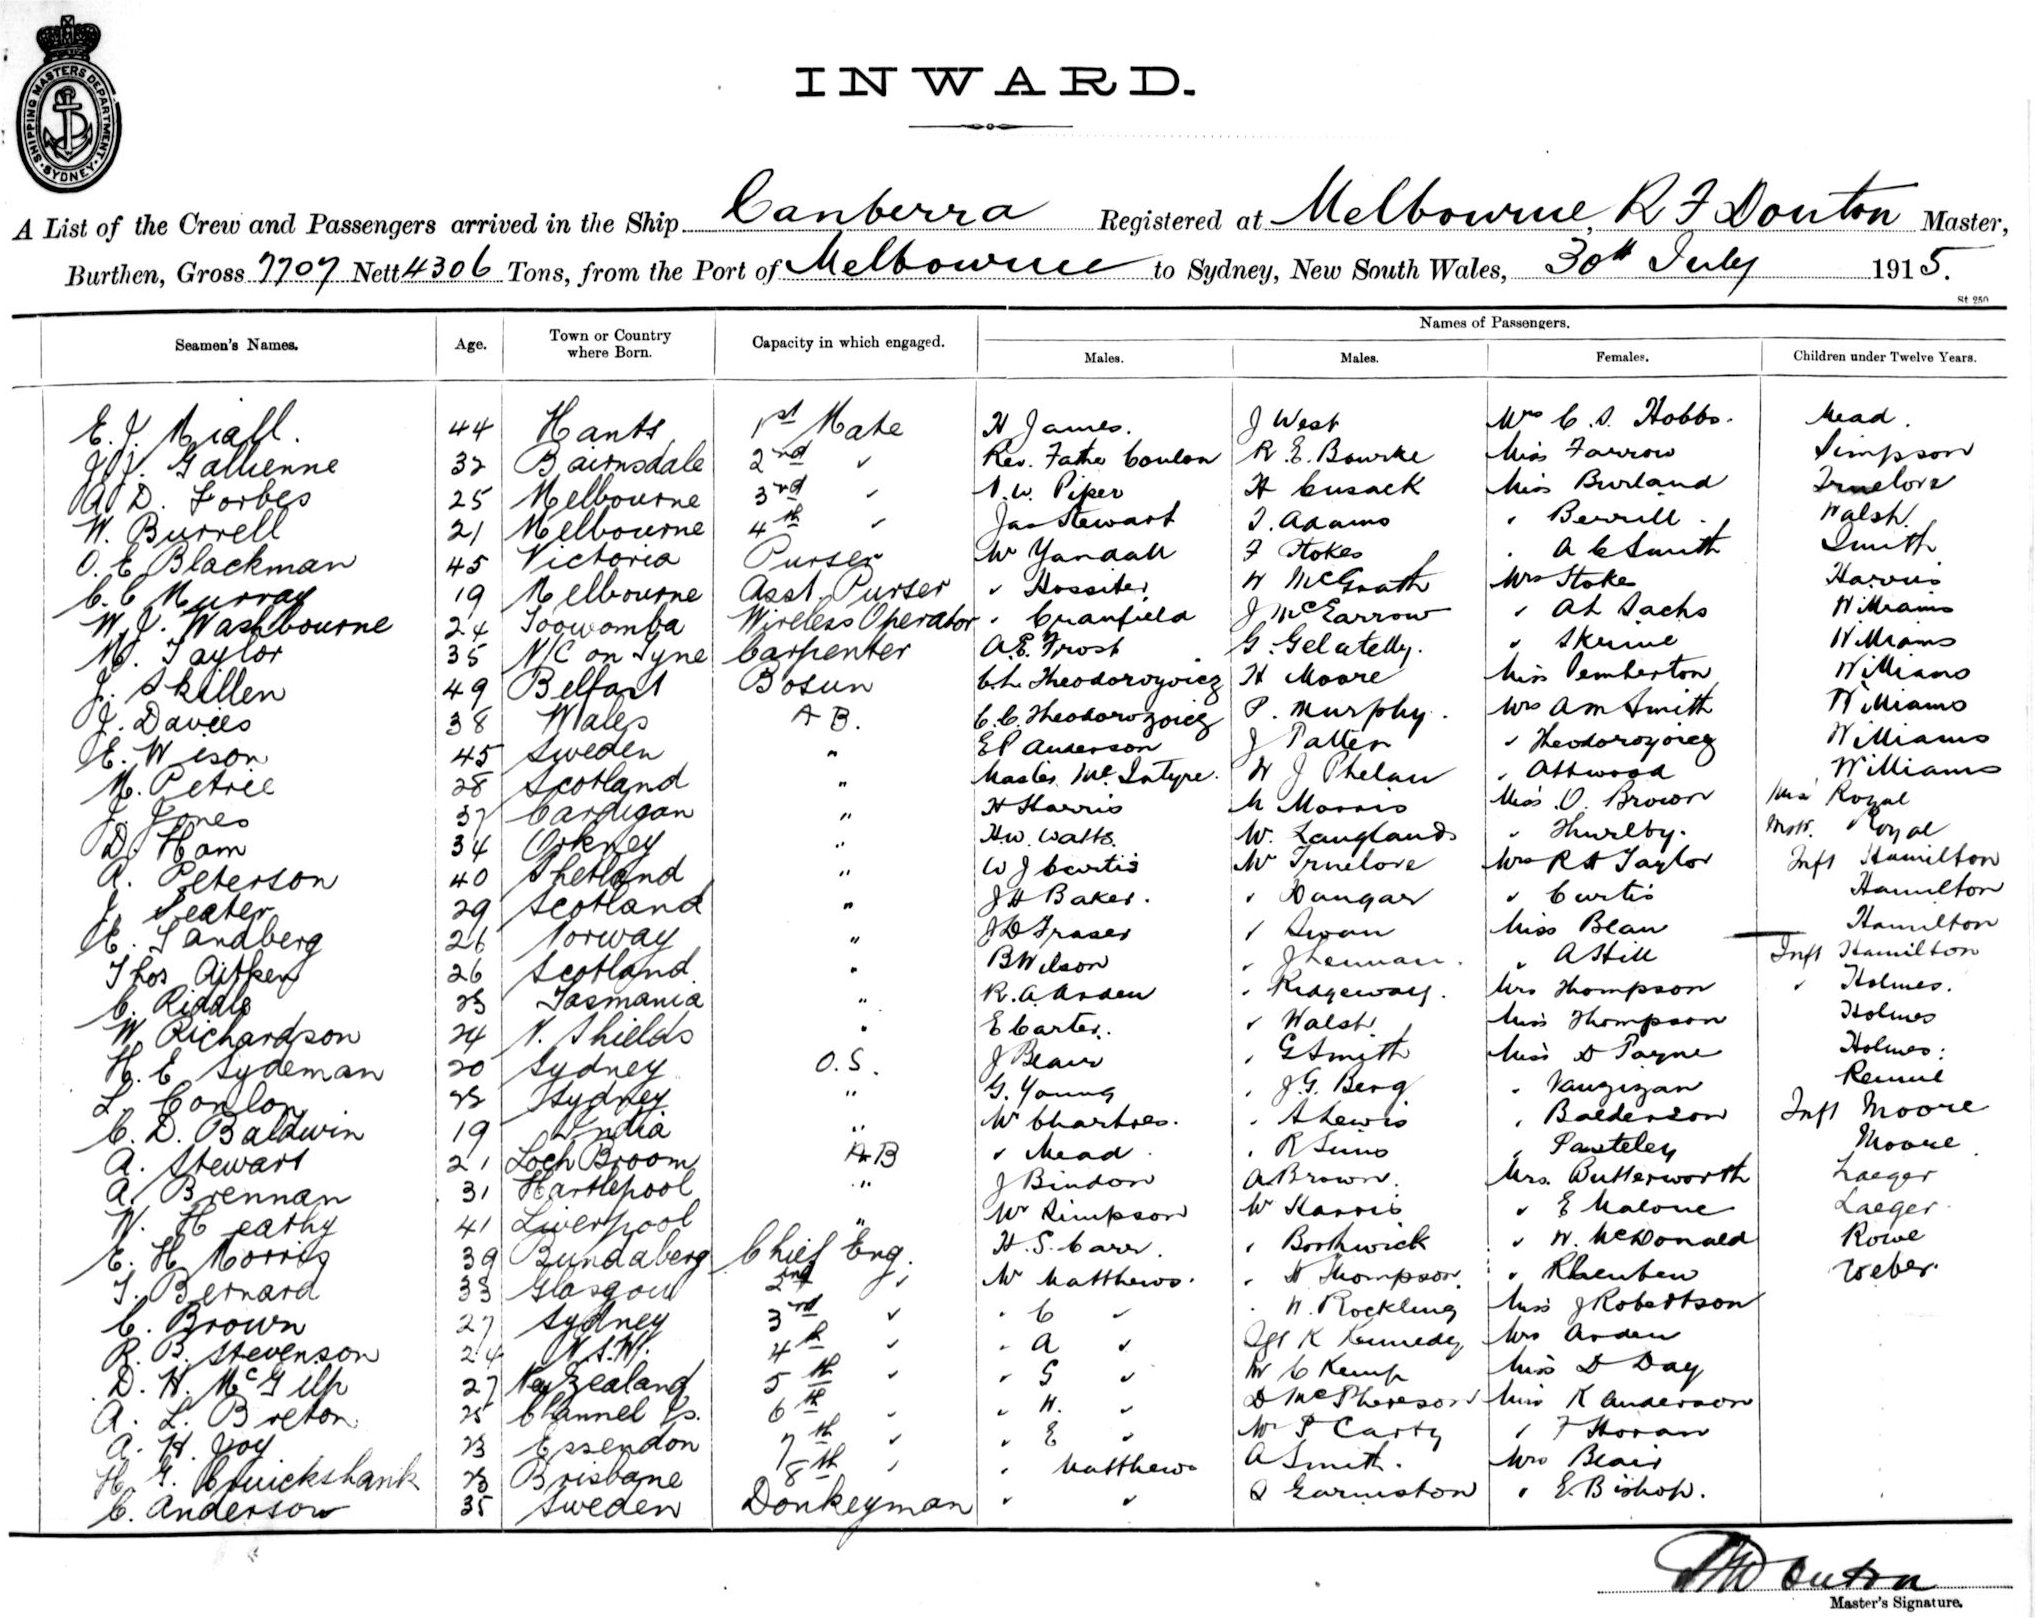 SHIPPING MASTERS DEPARTMENT
SYDNEY
INWARD.
A List of the Crew and Passengers arrived in the Ship Canberra Registered at Melbourne, R F Douton Master,
Burthen, Gross 7707 Nett 4306 Tons, from the Port of Melbourne to Sydney, New South Wales, 30th July 1915.
St 250
Names of Passengers.
Seamen's Names. Age. Town or Country where Born. Capacity in which engaged. Males. Males. Females. Children under Twelve Years.
E. J. Niall. 44 Hants 1st Mate H James. J West Mrs C. S. Hobbs. Mead.
J. J. Gallienne 32 Bairnsdale 2nd " Rev. Father Conlon R. E. Bourke Miss Farrow Simpson
A D. Forbes 25 Melbourne 3rd " N. W. Piper H Cusack Miss Burland Truelove
W. Burrell 21 Melbourne 4th " Jas Stewart T. Adams " Berrill. Walsh.
O. E Blackman 45 Victoria Purser Mr Yandall F Stokes " A C Smith Smith
C. C Murray 19 Melbourne Asst. Purser " Hossiter W McGrath Mrs Stokes Harris
W. J. Washbourne 24 Toowomba Wireless Operator " Cranfield J McEarrow " A L Sachs Williams
M. Taylor 35 N/C on Tyne Carpenter A. E. Frost G. Gelatelly. " Skrine Williams
J. Skillen 49 Belfast Bosun C. L. Theodorozoicz H Moore Miss Pemberton Williams
J. Davies 38 Wales A B. C. C. Theodorozoicz P. Murphy. Mrs A M Smith Williams
E. Wison 45 Sweden " E P Anderson J Patten " Theodorozoicz Williams
M. Petrie 28 Scotland " Master McIntyre. W J Phelan " Attwood Williams
J. Jones 37 Cardigan " H Harris M Morris Miss O. Brown Miss Royal
D. Ham 34 Orkney " H. W. Watts. W. Langlands " Thurlby. Mstr. Royal
A. Peterson 40 Shetland " W J Curtis Mr Truelove Mrs R H Taylor Inft Hamilton
J. Seater 29 Scotland " J H Baker. " Dangar " Curtis Hamilton
E. Sandberg 26 Norway " J D Fraser " Swan Miss Bean Hamilton
Thos Aitken 26 Scotland " B Wilson " J Lennan. " A Hill Inft Hamilton
C. Riddle 23 Tasmania " R. A. Arden " Ridgeway. Mrs Thompson " Holmes.
W. Richardson 24 N. Shields " E Carter. " Walsh Miss Thompson Holmes
H. E Sydeman 20 Sydney O. S. J Blair " G Smith Miss D Payne Holmes.
L. Conlon Sydney " G. Young " J. G. Berg " Rennie
C. D. Baldwin 19 India " Mr Chartres. " A Lewis " Balderson Inft Moore
A. Stewart 21 Loch Broom A B " Mead. " R Sims " Moore
A. Brennan 31 Hartlepool " J Bindon A Brown. Mrs. Butterworth Laeger
W. Heathy 41 Liverpool " Mr Simpson Mr Harris " E Malone Laeger.
E. H. Morris 39 Bundaberg Chief Eng. H. S. Carr. " Borthwick " W. McDonald Rowe
T. Bernard 33 Glasgow 2nd " Mr Matthews. " H Thompson " Rheuben Weber.
C. Brown 27 Sydney 3rd " " C " " W. Rockling Miss J Robertson
R. B. Stevenson 24 N. S. W. 4th " " A " Sgt K Kennedy Mrs Arden
D. H. McGilp 27 New Zealand 5th " " G " W C Kemp Miss D Day
A. L. Breton 25 Channel Is. 6th " " H. " D McPhereson Miss K Anderson
A. H. Joy 23 Essendon 7th " " E " Mr P Carty " F Horan
H. G. Cruickshank 23 Brisbane 8th " " Matthews A Smith. Mrs Blair
C. Anderson 35 Sweden Donkeyman " " Garmston " E. Bishop.
Douton
Master's Signature.